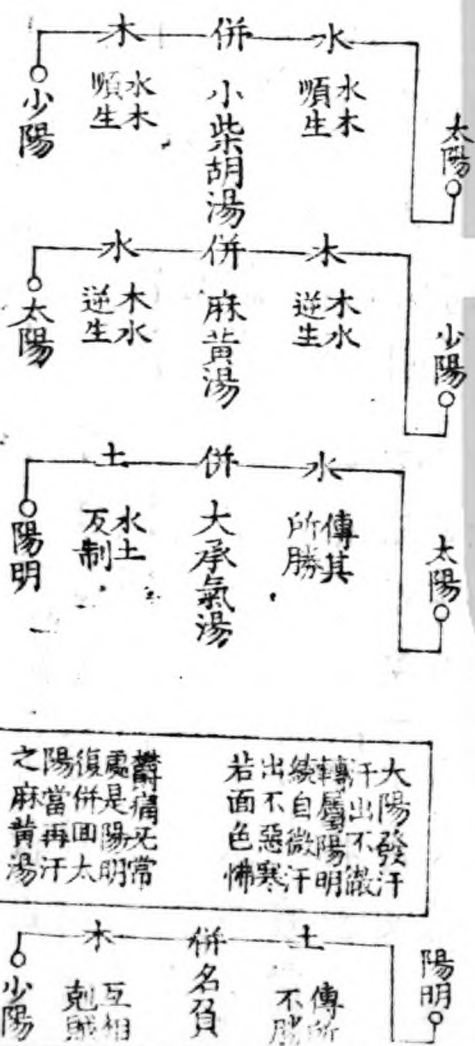 太陽
水
水木
順生
併
小柴胡湯
木
水木
順生
少陽
少陽
木
木水
逆生
併
麻黃湯
水
木水
逆生
太陽
太陽
水
傳其
所勝
併
大承氣湯
土
水土
反制
陽明
大陽發汗
汗出不徹
轉屬陽明
續自微汗
出不惡寒
若面色怫
鬱痛无常
處是陽明
復併回太
陽當再汗
之麻黃湯
陽明
土
傳所
不勝
併名負
木
互相
剋賊
少陽